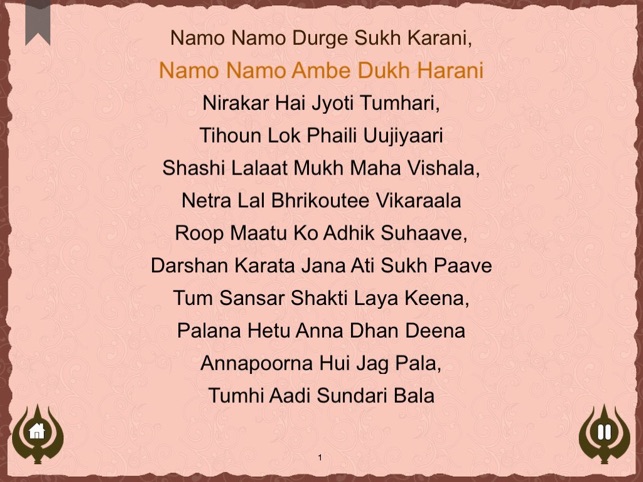 Namo Namo Durge Sukh Karani,
Namo Namo Ambe Dukh Harani
Nirakar Hai Jyoti Tumhari,
Tihoun Lok Phaili Uujiyaari
Shashi Lalaat Mukh Maha Vishala,
Netra Lal Bhrikoutee Vikaraala
Roop Maatu Ko Adhik Suhaave,
Darshan Karata Jana Ati Sukh Paave
Tum Sansar Shakti Laya Keena,
Palana Hetu Anna Dhan Deena
Annapoorna Hui Jag Pala,
Tumhi Aadi Sundari Bala
1